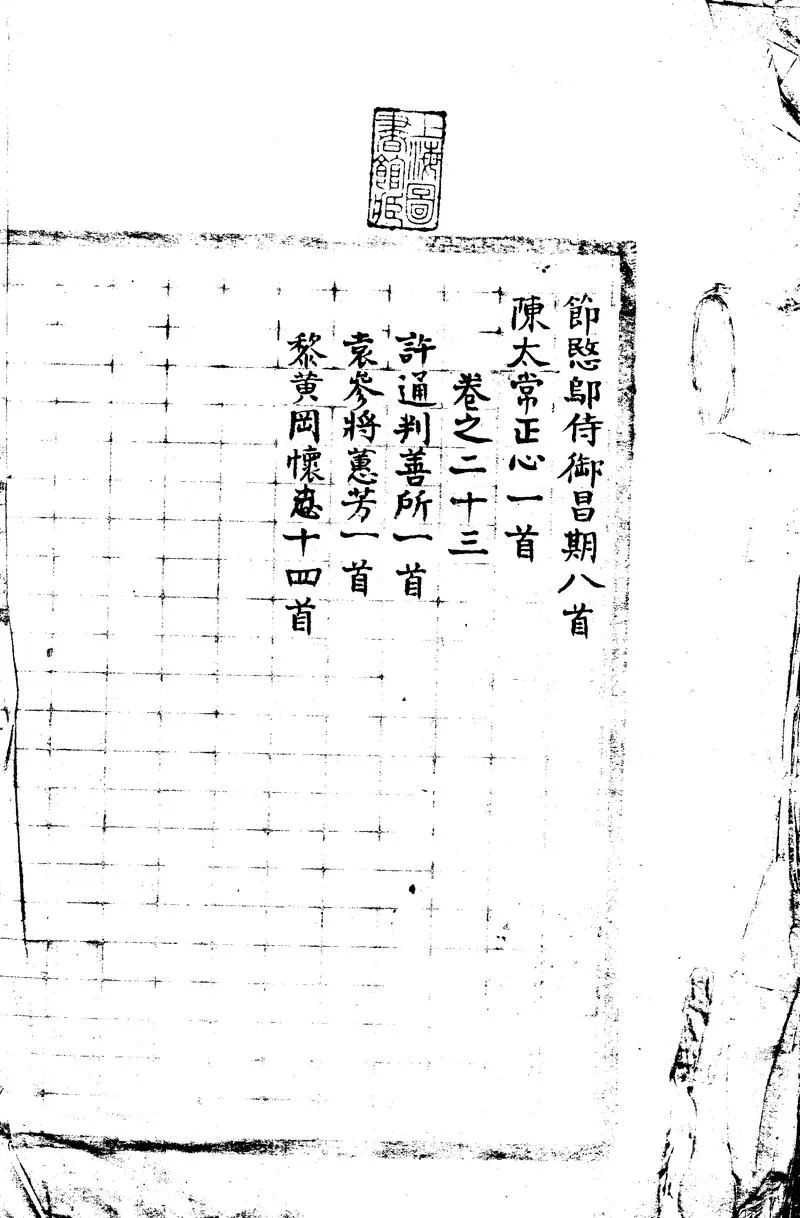 上海圖
書館藏
節愍鄔侍御昌期八首
陳太常正心一首
卷之二十三
許通判善所一首
袁參將蕙芳一首
黎黃岡懷志十四首